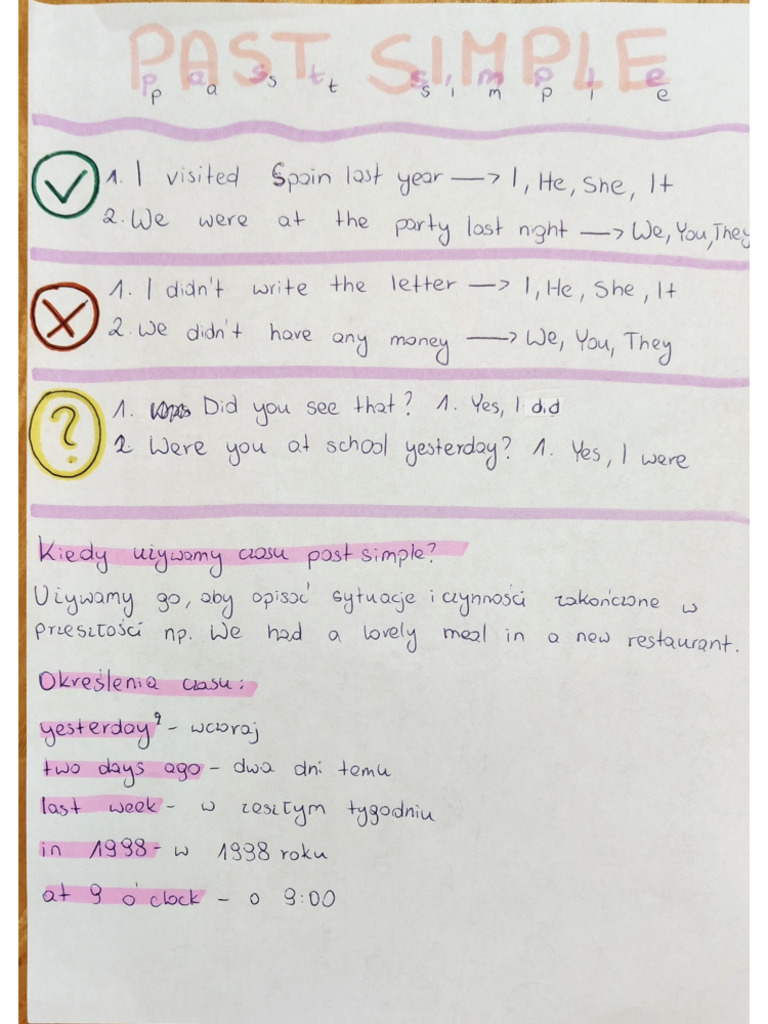 PAST SIMPLE
past simple
1. I visited Spain last year → I, He, She, It
2. We were at the party last night → We, You, They
1. I didn't write the letter → I, He, She, It
2. We didn't have any money → We, You, They
1. Did you see that? 1. Yes, I did
2 Were you at school yesterday? 1. Yes, I were
Kiedy używamy czasu past simple?
Używamy go, aby opisać sytuacje i czynności zakończone w
przeszłości np. We had a lovely meal in a new restaurant.
Określenia czasu:
yesterday - wczoraj
two days ago - dwa dni temu
last week - w zeszłym tygodniu
in 1998 - w 1998 roku
at 9 o'clock - o 9:00